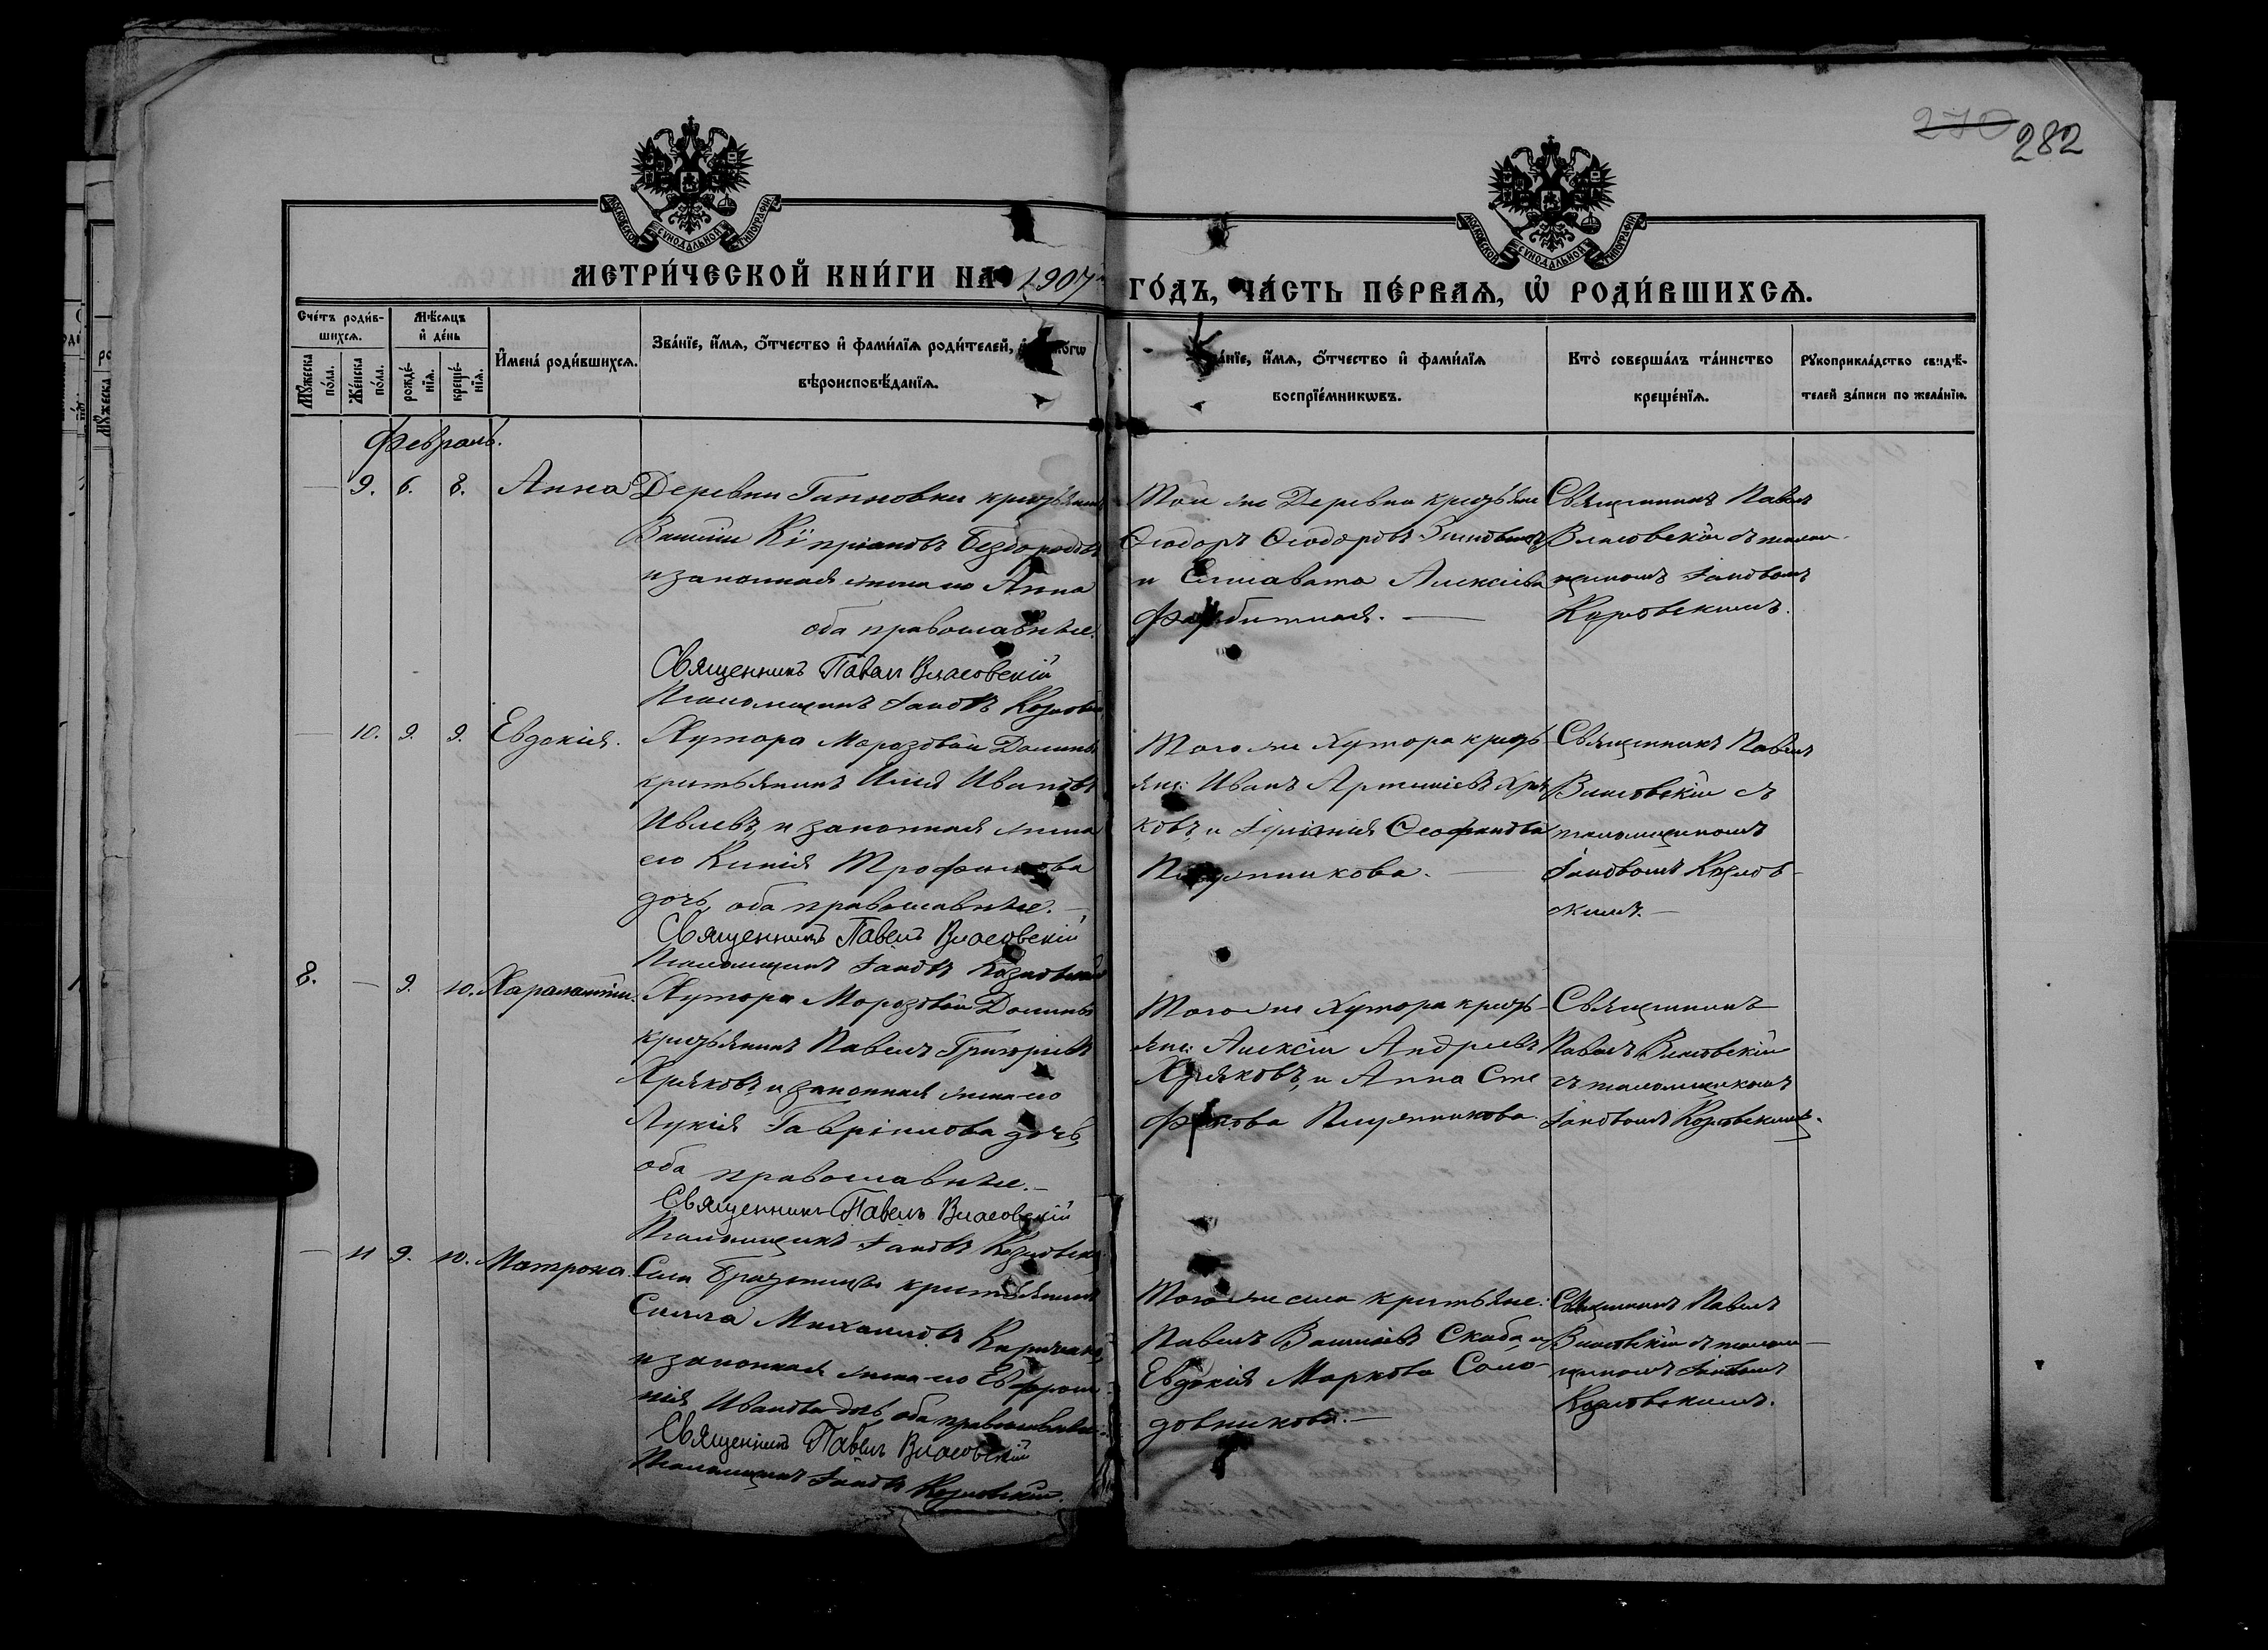 270 282
МОСКОВСКОЙ СѴНОДАЛЬНОЙ ТИПОГРАФІИ
МОСКОВСКОЙ СѴНОДАЛЬНОЙ ТИПОГРАФІИ
МЕТРИ́ЧЕСКОЙ КНИ́ГИ НА 1907
ГО́ДЪ, ЧА́СТЬ ПЕ́РВАѦ, Ѡ҆ РОДИ́ВШИХСѦ.
Сче́тъ роди́в-
шихсѧ.
Мꙋ́жеска по́ла.
Же́нска по́ла.
Мѣ́сѧцъ
и҆ де́нь
рожде́-
нїѧ.
креще́-
нїѧ.
И҆мена̀ роди́вшихсѧ.
Зва́нїе, и҆́мѧ, ѻ҆́тчество и҆ фами́лїѧ роди́телей,
вѣроисповѣ́данїѧ.
и҆́мѧ, ѻ҆́тчество и҆ фами́лїѧ
воспрїе́мникѡвъ.
Кто̀ соверша́лъ та́инство
креще́нїѧ.
Рꙋкоприкла́дство свидѣ́-
телей за́писи по жела́нїю.
Февраль.
— 9. 6. 8. Анна
Деревни Ганновки крестьянинъ
Кипріановъ Безбородовъ
и законная жена его Анна
оба православные.
Священникъ Павелъ Власовскій
Псаломщикъ Іаковъ
Той же Деревни крестьяне
Ѳеодоръ Ѳеодоровъ
и Елисавета Алексіева
Священникъ Павелъ
Власовскій съ псалом-
щикомъ Іаковомъ
Козловскимъ.
— 10. 9. 9. Евдокія.
Хутора Морозовой Долины
крестьянинъ Илія Ивановъ
Ивлевъ, и законная жена
его Ксенія Трофимова
дочь, оба православные.—
Священникъ Павелъ Власовскій
Псаломщикъ Іаковъ Козловскій
Того же Хутора кресть-
яне: Иванъ Артеміевъ Хря-
ковъ, и Ѳеофанова
Священникъ Павелъ
Власовскій съ
псаломщикомъ
Іаковомъ Козлов-
скимъ.—
8. — 9. 10. Харалампій.
Хутора Морозовой Долины
крестьянинъ Павелъ Григоріевъ
Хряковъ, и законная жена его
Лукія Гавріилова дочь,
оба православные.—
Священникъ Павелъ Власовскій
Псаломщикъ Іаковъ Козловскій
Того же Хутора кресть-
яне: Алексій Андреевъ
Хряковъ, и Анна Сте
фанова
Священникъ
Павелъ Власовскій
съ псаломщикомъ
Іаковомъ Козловскимъ.
— 11 9. 10. Матрона.
Села крестьянинъ
Михаиловъ
и законная жена его Евфроси-
нія Иванова дочь, оба православные.
Священникъ Павелъ Власовскій
Псаломщикъ Іаковъ Козловскій.
Того же села крестьяне:
Павелъ Василіевъ Скиба, и
Евдокія Маркова Соло-
довникова.—
Священникъ Павелъ
Власовскій съ псалом-
щикомъ Іаковомъ
Козловскимъ.